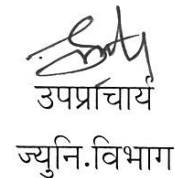 उपप्राचार्य
ज्युनि.विभाग